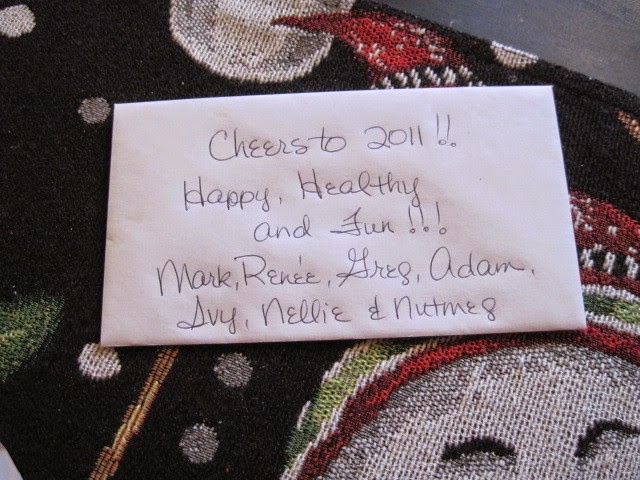 Cheers to 2011!!
Happy, Healthy
and Fun!!!
Mark, Renée, Greg, Adam,
Ivy, Nellie & Nutmeg